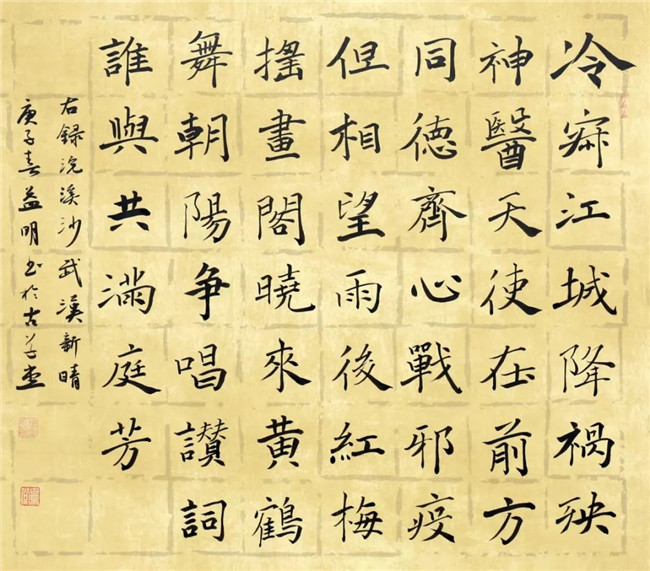 冷寂江城降禍殃
神醫天使在前方
同德齊心戰邪疫
但相望雨後紅梅
搖畫閣曉來黃鶴
舞朝陽争唱讚詞
誰與共滿庭芳
右録浣溪沙武漢新晴
庚子春益明书於古堂